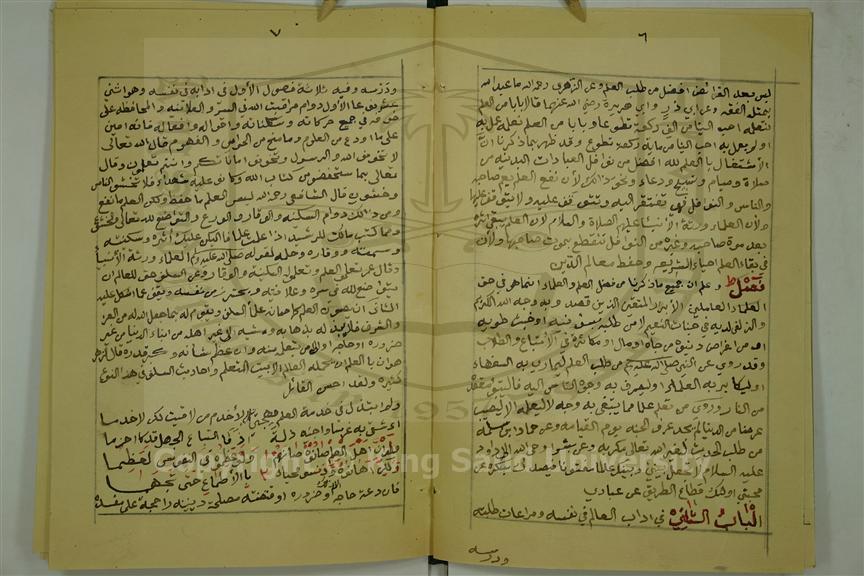 ٦
ليس بعد الفرائض افضل من طلب العلم وعن الزهري رحمه الله ما عبد الله
بمثل الفقه وعن ابي ذر وابي هريرة رضي الله عنهما قالا بابا من العلم
نتعلمه احب الينا من الف ركعة تطوعا وبابا من العلم نعلمه عمل به
او لم يعمل به احب الينا من ماية ركعة تطوع وقد ظهر بما ذكرنا ان
الاشتغال بالعلم لله افضل من نوافل العبادات البدنيه من
صلاة وصيام وتسبيح ودعاء ونحو ذالك لان نفع العلم يعم صاحبه
والناس والنوافل فهي مفتقره اليه وتتوقف عليه ولا يتوقف عليها
ولان العلماء ورثة الانبياء عليهم الصلاة والسلام لان العلم يبقى اثره
بعد موت صاحبه وغيره من النوافل تنقطع بموت صاحبها ولان
في بقاء العلم احياء الشريعه وحفظ معالم الدين
فصل واعلم ان جميع ما ذكرنا من فضل العلم والعلماء انما هو في حق
العلماء العاملين الابرار المتقين الذين قصدوا به وجه الله الكريم
والزلفى لديه في جنات النعيم لا من طلبه بسوء نيه او خبث طويه
او من اغراض دنيويه من جاه او مال او مكاثره في الاتباع والطلاب
وقد روي عن النبي صلى الله عليه وسلم من طلب العلم ليماري به السفهاء
او ليكابر به العلماء او ليصرف به وجوه الناس اليه فاليتبوء مقعده
من النار وروي من تعلم علما مما يبتغى به وجه الله لا يتعلمه الا ليصيب
عرضا من الدنيا لم يجد عرف الجنة يوم القيامه وعن حماد ابن سلمه
من طلب الحديث لغير الله تعالى مكر به وعن بشر اوحى الله الى داود
عليه السلام لا تجعل بيني وبينك عالما مفتونا فيصدك بسكره عن
محبتي اولئك قطاع الطريق عن عبادي
الباب الثاني في اداب العالم في نفسه ومراعات طلبته
ودرسه
٧
ودرسه وفيه ثلاثة فصول الاول في ادابه في نفسه وهو اثنى
عشر نوعا الاول دوام مراقبت الله في السر والعلانيه والمحافظه على
خوفه في جميع حركاته وسكناته واقواله وافعاله فانه امين
على ما اودع من العلوم وما منح من الحواس والفهوم قال الله تعالى
لا تخونوا الله والرسول وتخونوا اماناتكم وانتم تعلمون وقال
تعالى بما استحفظوا من كتاب الله وكانوا عليه شهداء فلا تخشوا الناس
واخشون قال الشافعي رحمه الله ليس العلم ما حفظ ولكن العلم ما نفع
ومن ذالك دوام السكينه والوقار والورع والتواضع لله تعالى والخشوع
ومما كتب مالك للرشيد اذا علمت علما فاليكن عليك اثره وسكينته
وسمته ووقاره وحلمه لقوله صلى الله عليه وسلم العلماء ورثة الانبياء
وقال عمر تعلموا العلم وتعلموا له السكينة والوقار وعن السلف حق للعالم ان
يتواضع لله في سره وعلانيته ويحترس من نفسه ويقف عما اشكل عليه
الثاني ان يصون العلم كما صانه علماء السلف ويقوم له بما جعل الله له من العزه
والشرف فلا يذله له بذهابه ومشيه الى غير اهله من ابناء الدنيا من غير
ضروره او حاجه او الى من يتعلمه منه وان عظم شانه وكبر قدره قال الزهري
هوان بالعلم ان يحمله العالم الى بيت المتعلم واحاديث السلف في هذا النوع
كثيره ولقد احسن القائل
ولم ابتذل في خدمة العلم مهجتي لاخدم من لاقيت لكن لاخدما
أأشقى به غرسا واجنيه ذلة اذا فاتباع الجهل قد كان احزما
ولو ان اهل العلم صانوه صانهم ولو عظموه في النفوس لعظما
ولكن اهانوه فهان ودنسوا محياه بالاطماع حتى تجهما
فان دعة حاجه الى ذالك او ضروره او اقتضته مصلحه دينيه راجحة على مفسدة